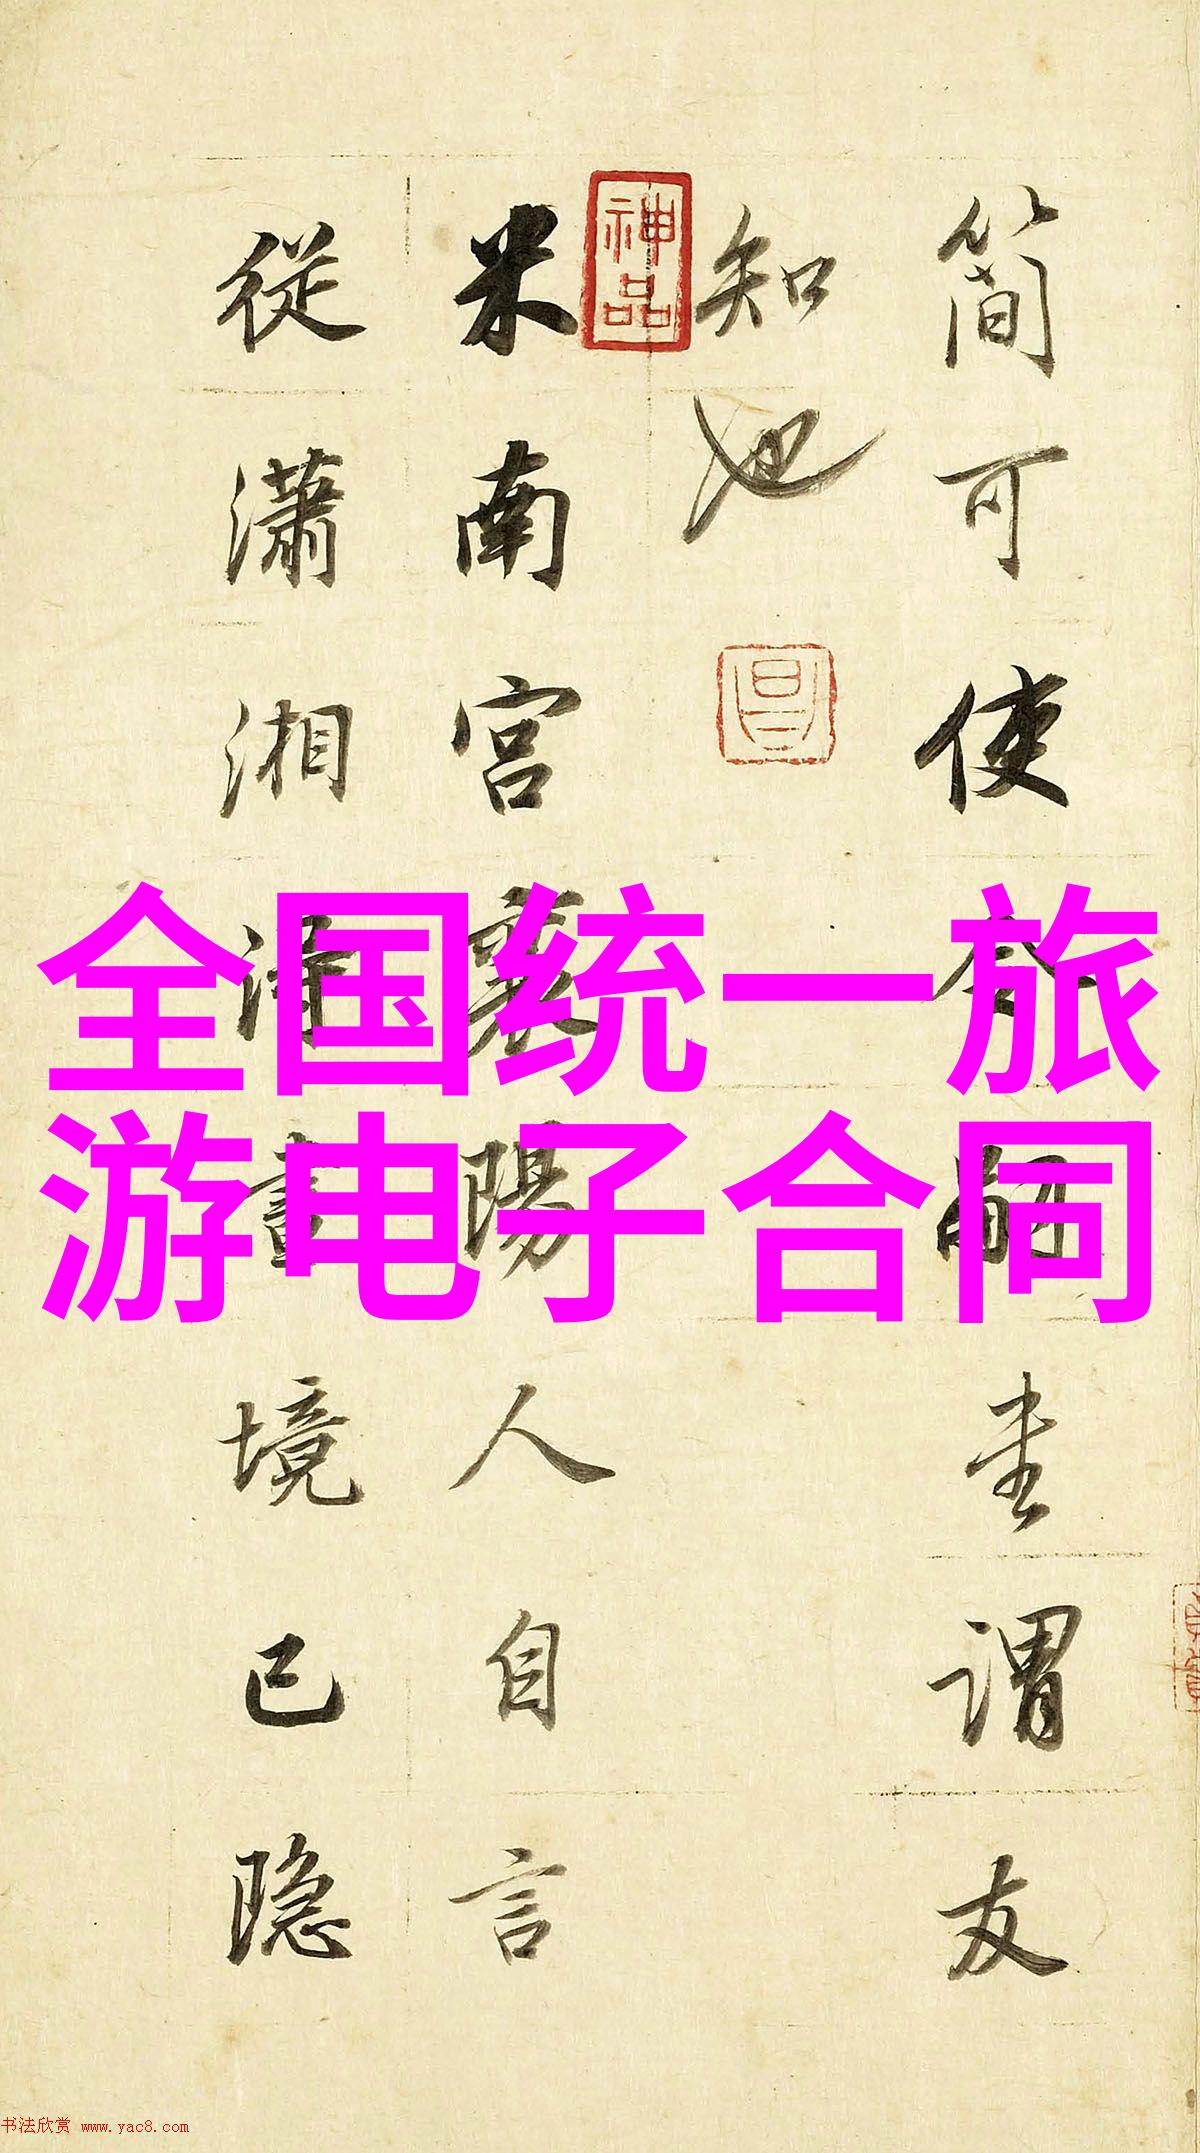 简可使令嗣謂友
知也
神品
昌
米南宮襄陽人自言
從瀟湘得畫境已隱
全国统一旅
游电子合同
书法欣赏 www.yac8.com